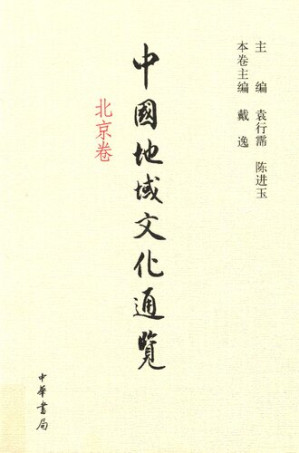 主编 袁行霈 陈进玉
本卷主编 戴逸
中國地域文化通覧
北京卷
中華書局